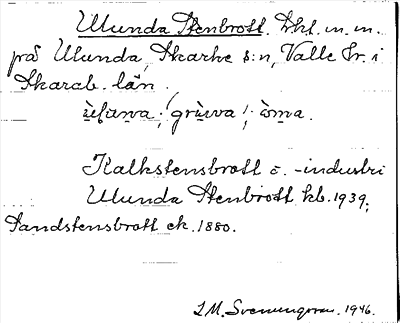 Ulunda Stenbrott. Lht. m. m.
på Ulunda, Skarke s:n, Valle hr. i
Skarab. län.
Kalkstensbrott o. -industri
Ulunda Stenbrott kb. 1939;
Sandstensbrott ek. 1880.
S. M. Svenungsson. 1946.